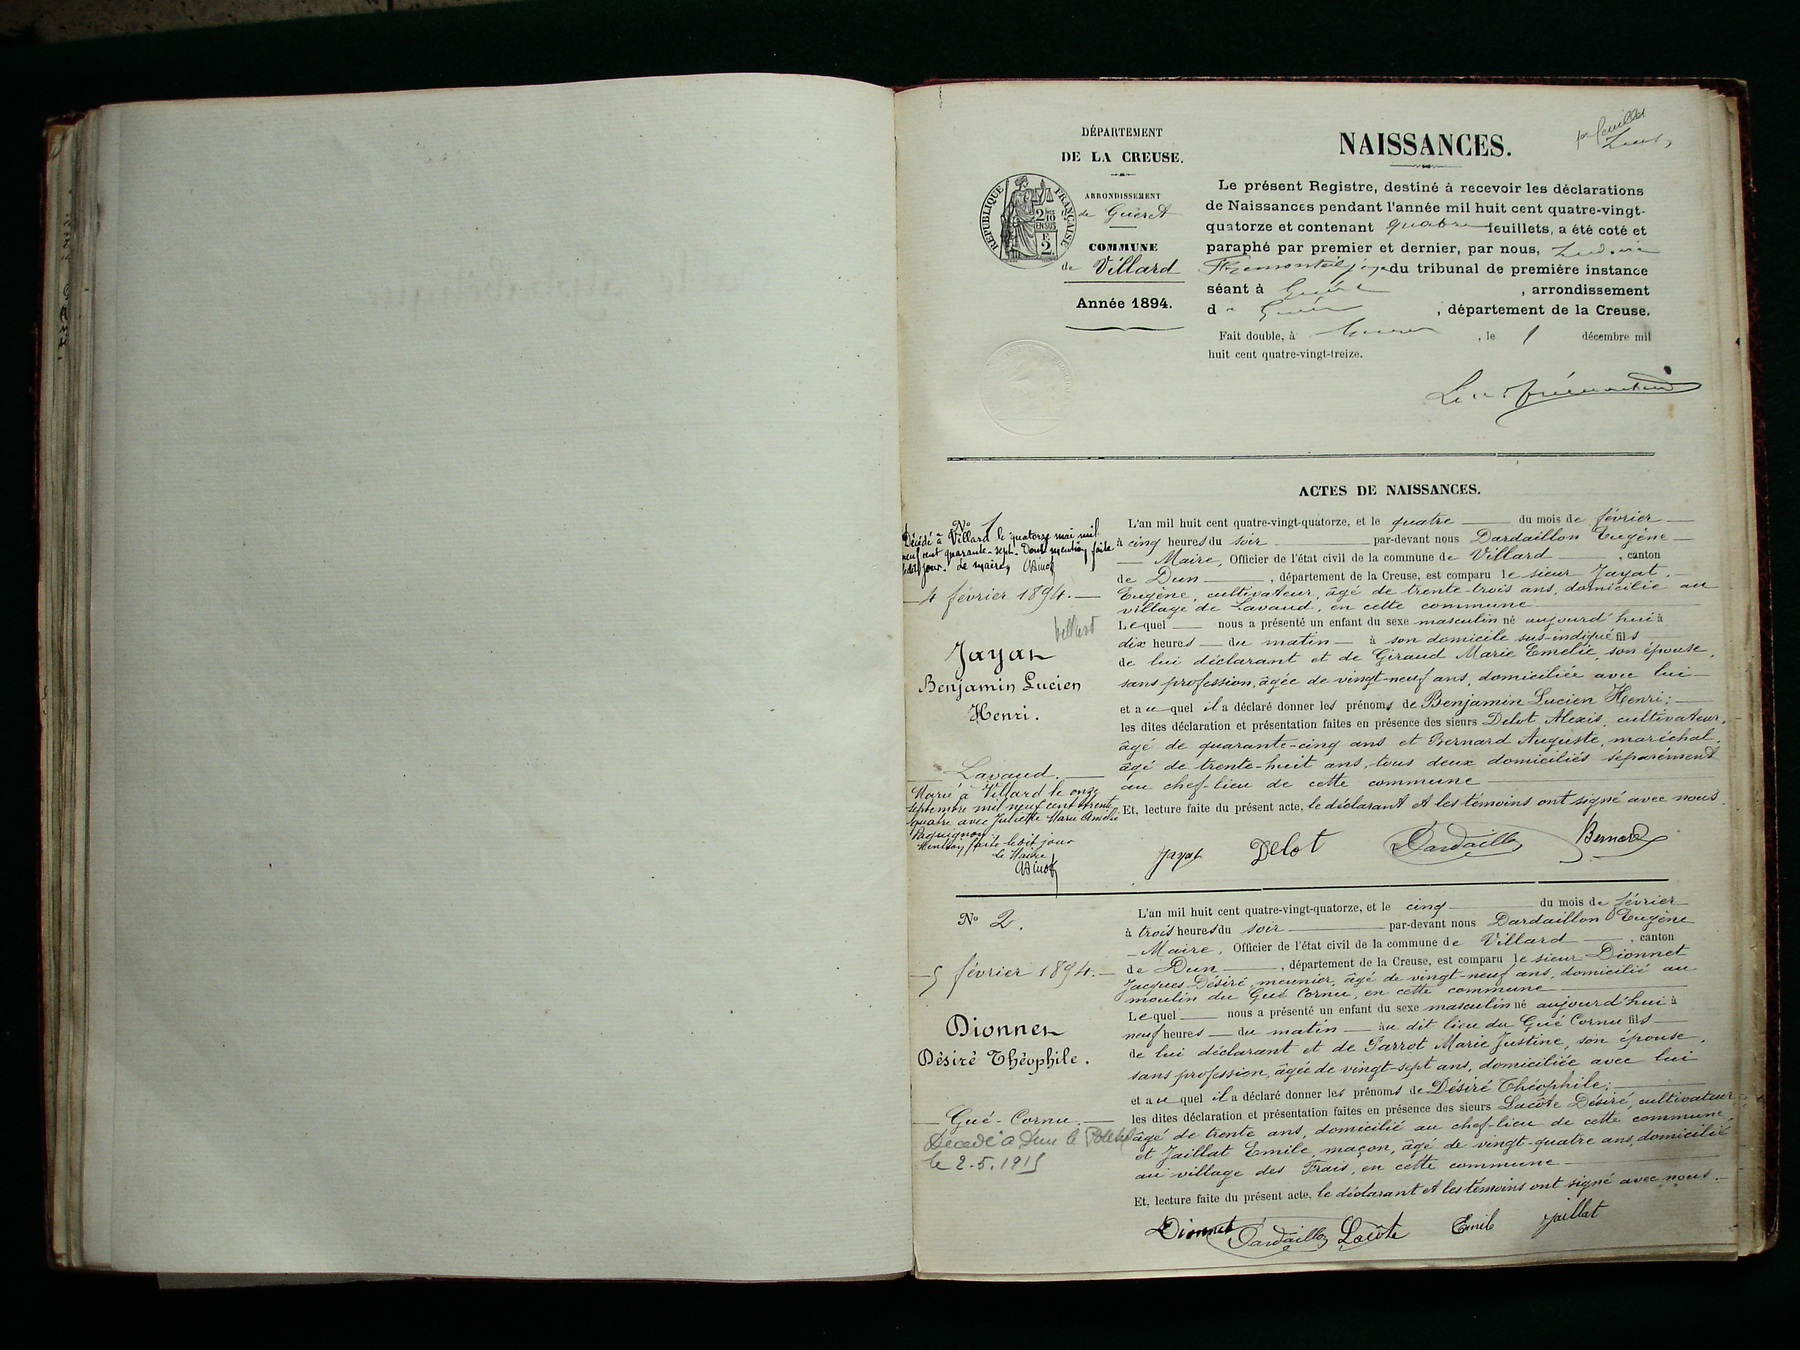 DÉPARTEMENT
DE LA CREUSE.
ARRONDISSEMENT
de Guéret
COMMUNE
de Villard
Année 1894.
RÉPUBLIQUE FRANÇAISE
2/10
EN SUS
2
NAISSANCES.
1er feuillet
Le présent Registre, destiné à recevoir les déclarations
de Naissances pendant l'année mil huit cent quatre-vingt-
quatorze et contenant quatre feuillets, a été coté et
paraphé par premier et dernier, par nous,
du tribunal de première instance
séant à Guéret, arrondissement
de Guéret, département de la Creuse.
Fait double, à Guéret, le 1 décembre mil
huit cent quatre-vingt-treize.
ACTES DE NAISSANCES.
No 1
Décédé à Villard le quatorze mai mil
neuf cent quarante-sept. Dont mention faite
ledit jour. Le maire,
4 février 1894.
Villard
Jayat
Benjamin Lucien
Henri.
Lavaud.
Marié à Villard le onze
septembre mil neuf cent trente
quatre avec Juliette Marie Amélie
Mention faite ledit jour
le Maire
L'an mil huit cent quatre-vingt-quatorze, et le quatre du mois de février
à cinq heures du soir par-devant nous Dardaillon Eugène
Maire, Officier de l'état civil de la commune de Villard, canton
de Dun, département de la Creuse, est comparu le sieur Jayat,
Eugène, cultivateur, âgé de trente-trois ans, domicilié au
village de Lavaud, en cette commune
Lequel nous a présenté un enfant du sexe masculin né aujourd'hui à
dix heures du matin à son domicile sus-indiqué fils
de lui déclarant et de Giraud Marie Emelie, son épouse,
sans profession, âgée de vingt-neuf ans, domiciliée avec lui
et auquel il a déclaré donner les prénoms de Benjamin Lucien Henri;
les dites déclaration et présentation faites en présence des sieurs Delot Alexis, cultivateur,
âgé de quarante-cinq ans et Bernard Auguste, maréchal,
âgé de trente-huit ans, tous deux domiciliés séparément
au chef-lieu de cette commune
Et, lecture faite du présent acte, le déclarant et les témoins ont signé avec nous.
Jayat Delot Dardaillon Bernard
No 2.
5 février 1894.
Dionnet
Désiré Théophile.
Gué-Cornu.
Décédé à Dun le Palestel
le 2.5.1915
L'an mil huit cent quatre-vingt-quatorze, et le cinq du mois de février
à trois heures du soir par-devant nous Dardaillon Eugène
Maire, Officier de l'état civil de la commune de Villard, canton
de Dun, département de la Creuse, est comparu le sieur Dionnet
Jacques Désiré, meunier, âgé de vingt-neuf ans, domicilié au
moulin du Gué Cornu, en cette commune
Lequel nous a présenté un enfant du sexe masculin né aujourd'hui à
neuf heures du matin au dit lieu du Gué Cornu fils
de lui déclarant et de Parrot Marie Justine, son épouse,
sans profession, âgée de vingt-sept ans, domiciliée avec lui
et auquel il a déclaré donner les prénoms de Désiré Théophile;
les dites déclaration et présentation faites en présence des sieurs Lacôte Désiré, cultivateur,
âgé de trente ans, domicilié au chef-lieu de cette commune,
et Jaillat Emile, maçon, âgé de vingt-quatre ans, domicilié
au village des Frais, en cette commune
Et, lecture faite du présent acte, le déclarant et les témoins ont signé avec nous.
Dionnet Dardaillon Lacôte Emile Jaillat